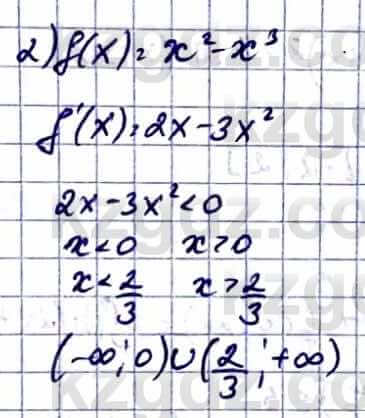 2) f(x) = x² - x³
f'(x) = 2x - 3x²
2x - 3x² < 0
x < 0 x > 0
x < 2/3 x > 2/3
(-∞; 0) ∪ (2/3; +∞)